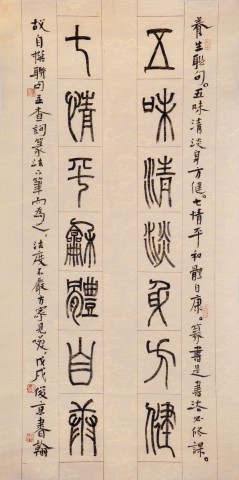 養生聯句。五味清淡身方健。七情平和體自康。篆書是書法必修課。
五味清淡身方健
七情平龢體自康
故自撰聯句並查詞篆法下筆而為之。法度不嚴方家見笑。戊戌俊京書翰